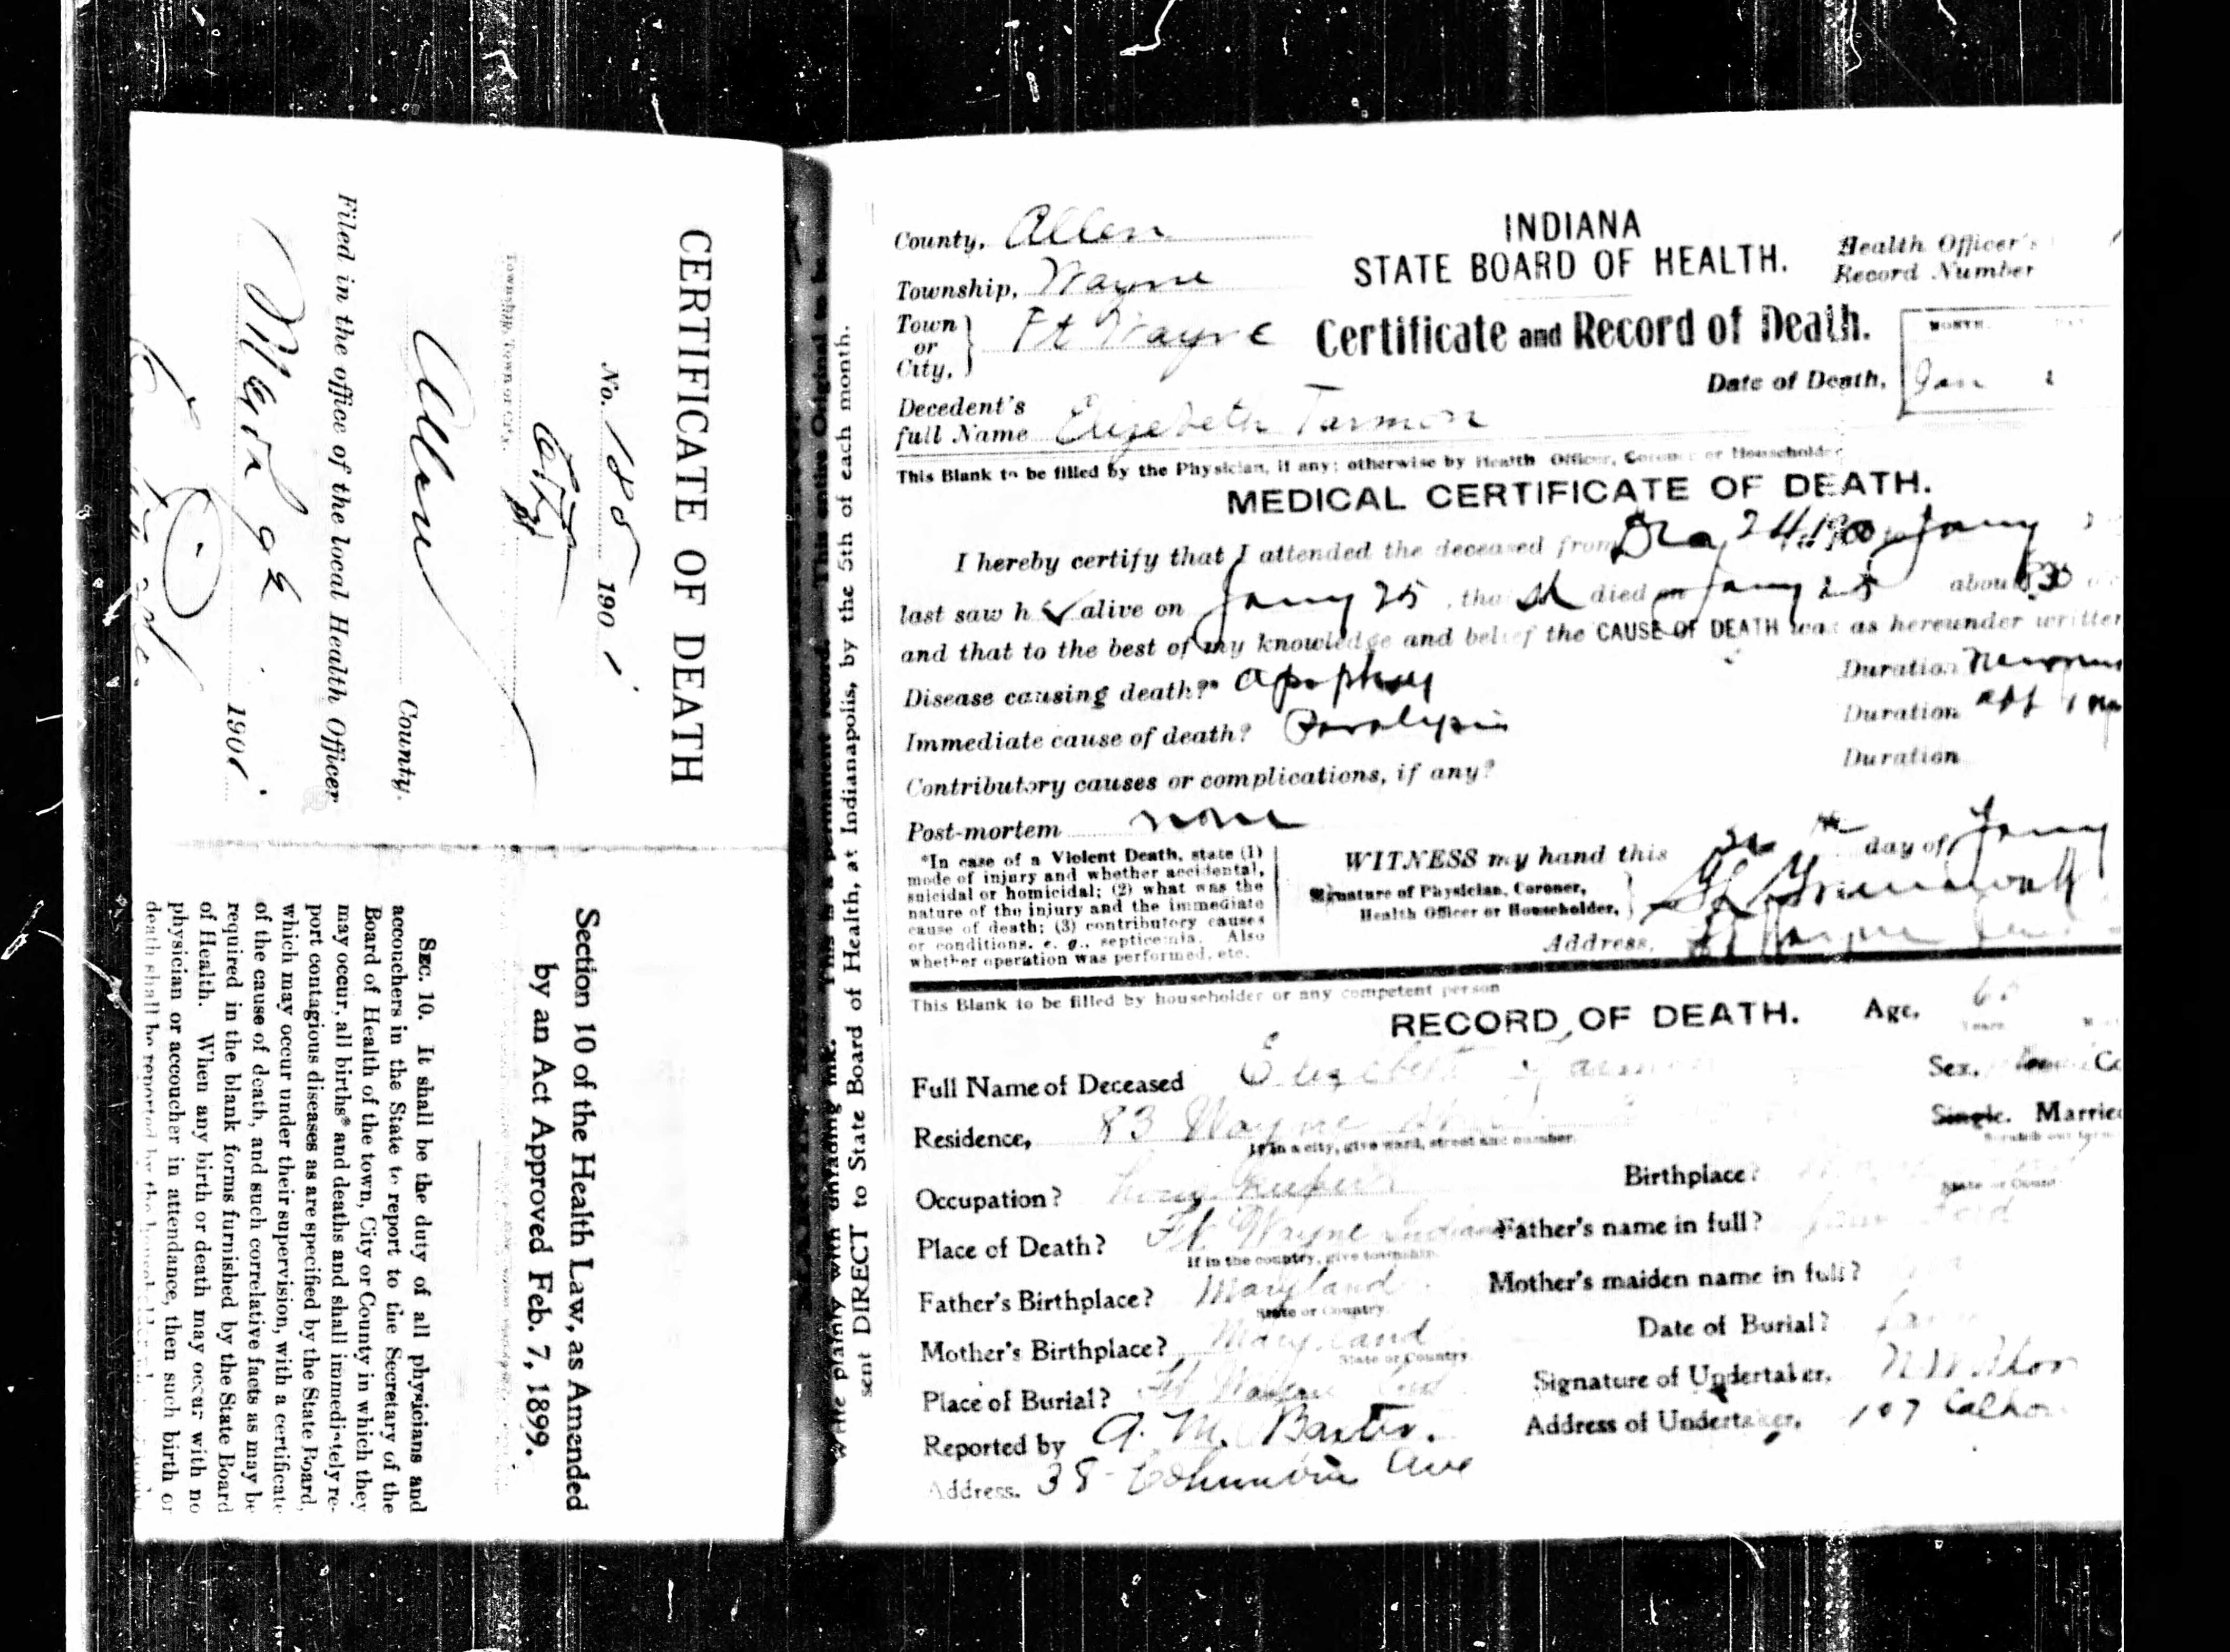 CERTIFICATE OF DEATH
No. 185 1901
City
Township, Town or City.
Allen County.
Filed in the office of the local Health Officer
March 1901
Section 10 of the Health Law, as Amended
by an Act Approved Feb. 7, 1899.
SEC. 10. It shall be the duty of all physicians and
accouchers in the State to report to the Secretary of the
Board of Health of the town, City or County in which they
may occur, all births* and deaths and shall immediately re-
port contagious diseases as are specified by the State Board,
which may occur under their supervision, with a certificate
of the cause of death, and such correlative facts as may be
required in the blank forms furnished by the State Board
of Health. When any birth or death may occur with no
physician or accoucher in attendance, then such birth or
death shall be reported by the householder
Write plainly with unfading ink. This is a permanent record. This entire Original to be
sent DIRECT to State Board of Health, at Indianapolis, by the 5th of each month.
INDIANA
STATE BOARD OF HEALTH.
Certificate and Record of Death.
Health Officer's
Record Number
County, Allen
Township, Wayne
Town or City, Ft Wayne
MONTH.
Date of Death, Jan
Decedent's
full Name Elizebeth Tarmon
This Blank to be filled by the Physician, if any; otherwise by Health Officer, Coroner or Householder
MEDICAL CERTIFICATE OF DEATH.
I hereby certify that I attended the deceased from 24 1900 to Jany
last saw h alive on Jany 25, tha died on Jany 25 about
and that to the best of my knowledge and belief the CAUSE OF DEATH was as hereunder written
Disease causing death?* Apoplexy Duration
Immediate cause of death? Paralysis Duration
Contributory causes or complications, if any? Duration
Post-mortem none
*In case of a Violent Death, state (1)
mode of injury and whether accidental,
suicidal or homicidal; (2) what was the
nature of the injury and the immediate
cause of death; (3) contributory causes
or conditions, e. g., septicemia. Also
whether operation was performed, etc.
WITNESS my hand this day of Jany
Signature of Physician, Coroner,
Health Officer or Householder,
Address, Ft Wayne
This Blank to be filled by householder or any competent person
RECORD OF DEATH. Age,
Years
Full Name of Deceased Elizebeth Tarmon Sex, Co
Residence, 83 Wayne Single. Married
If in a city, give ward, street and number.
Occupation? Birthplace?
State or Count
Place of Death? Ft Wayne Indiana Father's name in full?
If in the country, give township.
Father's Birthplace? Maryland Mother's maiden name in full?
State or Country.
Mother's Birthplace? Maryland Date of Burial?
State or Country.
Place of Burial? Ft Wayne Ind Signature of Undertaker,
Reported by A. M. Baxter. Address of Undertaker, 107 Calho
Address. 38 Columbia Ave